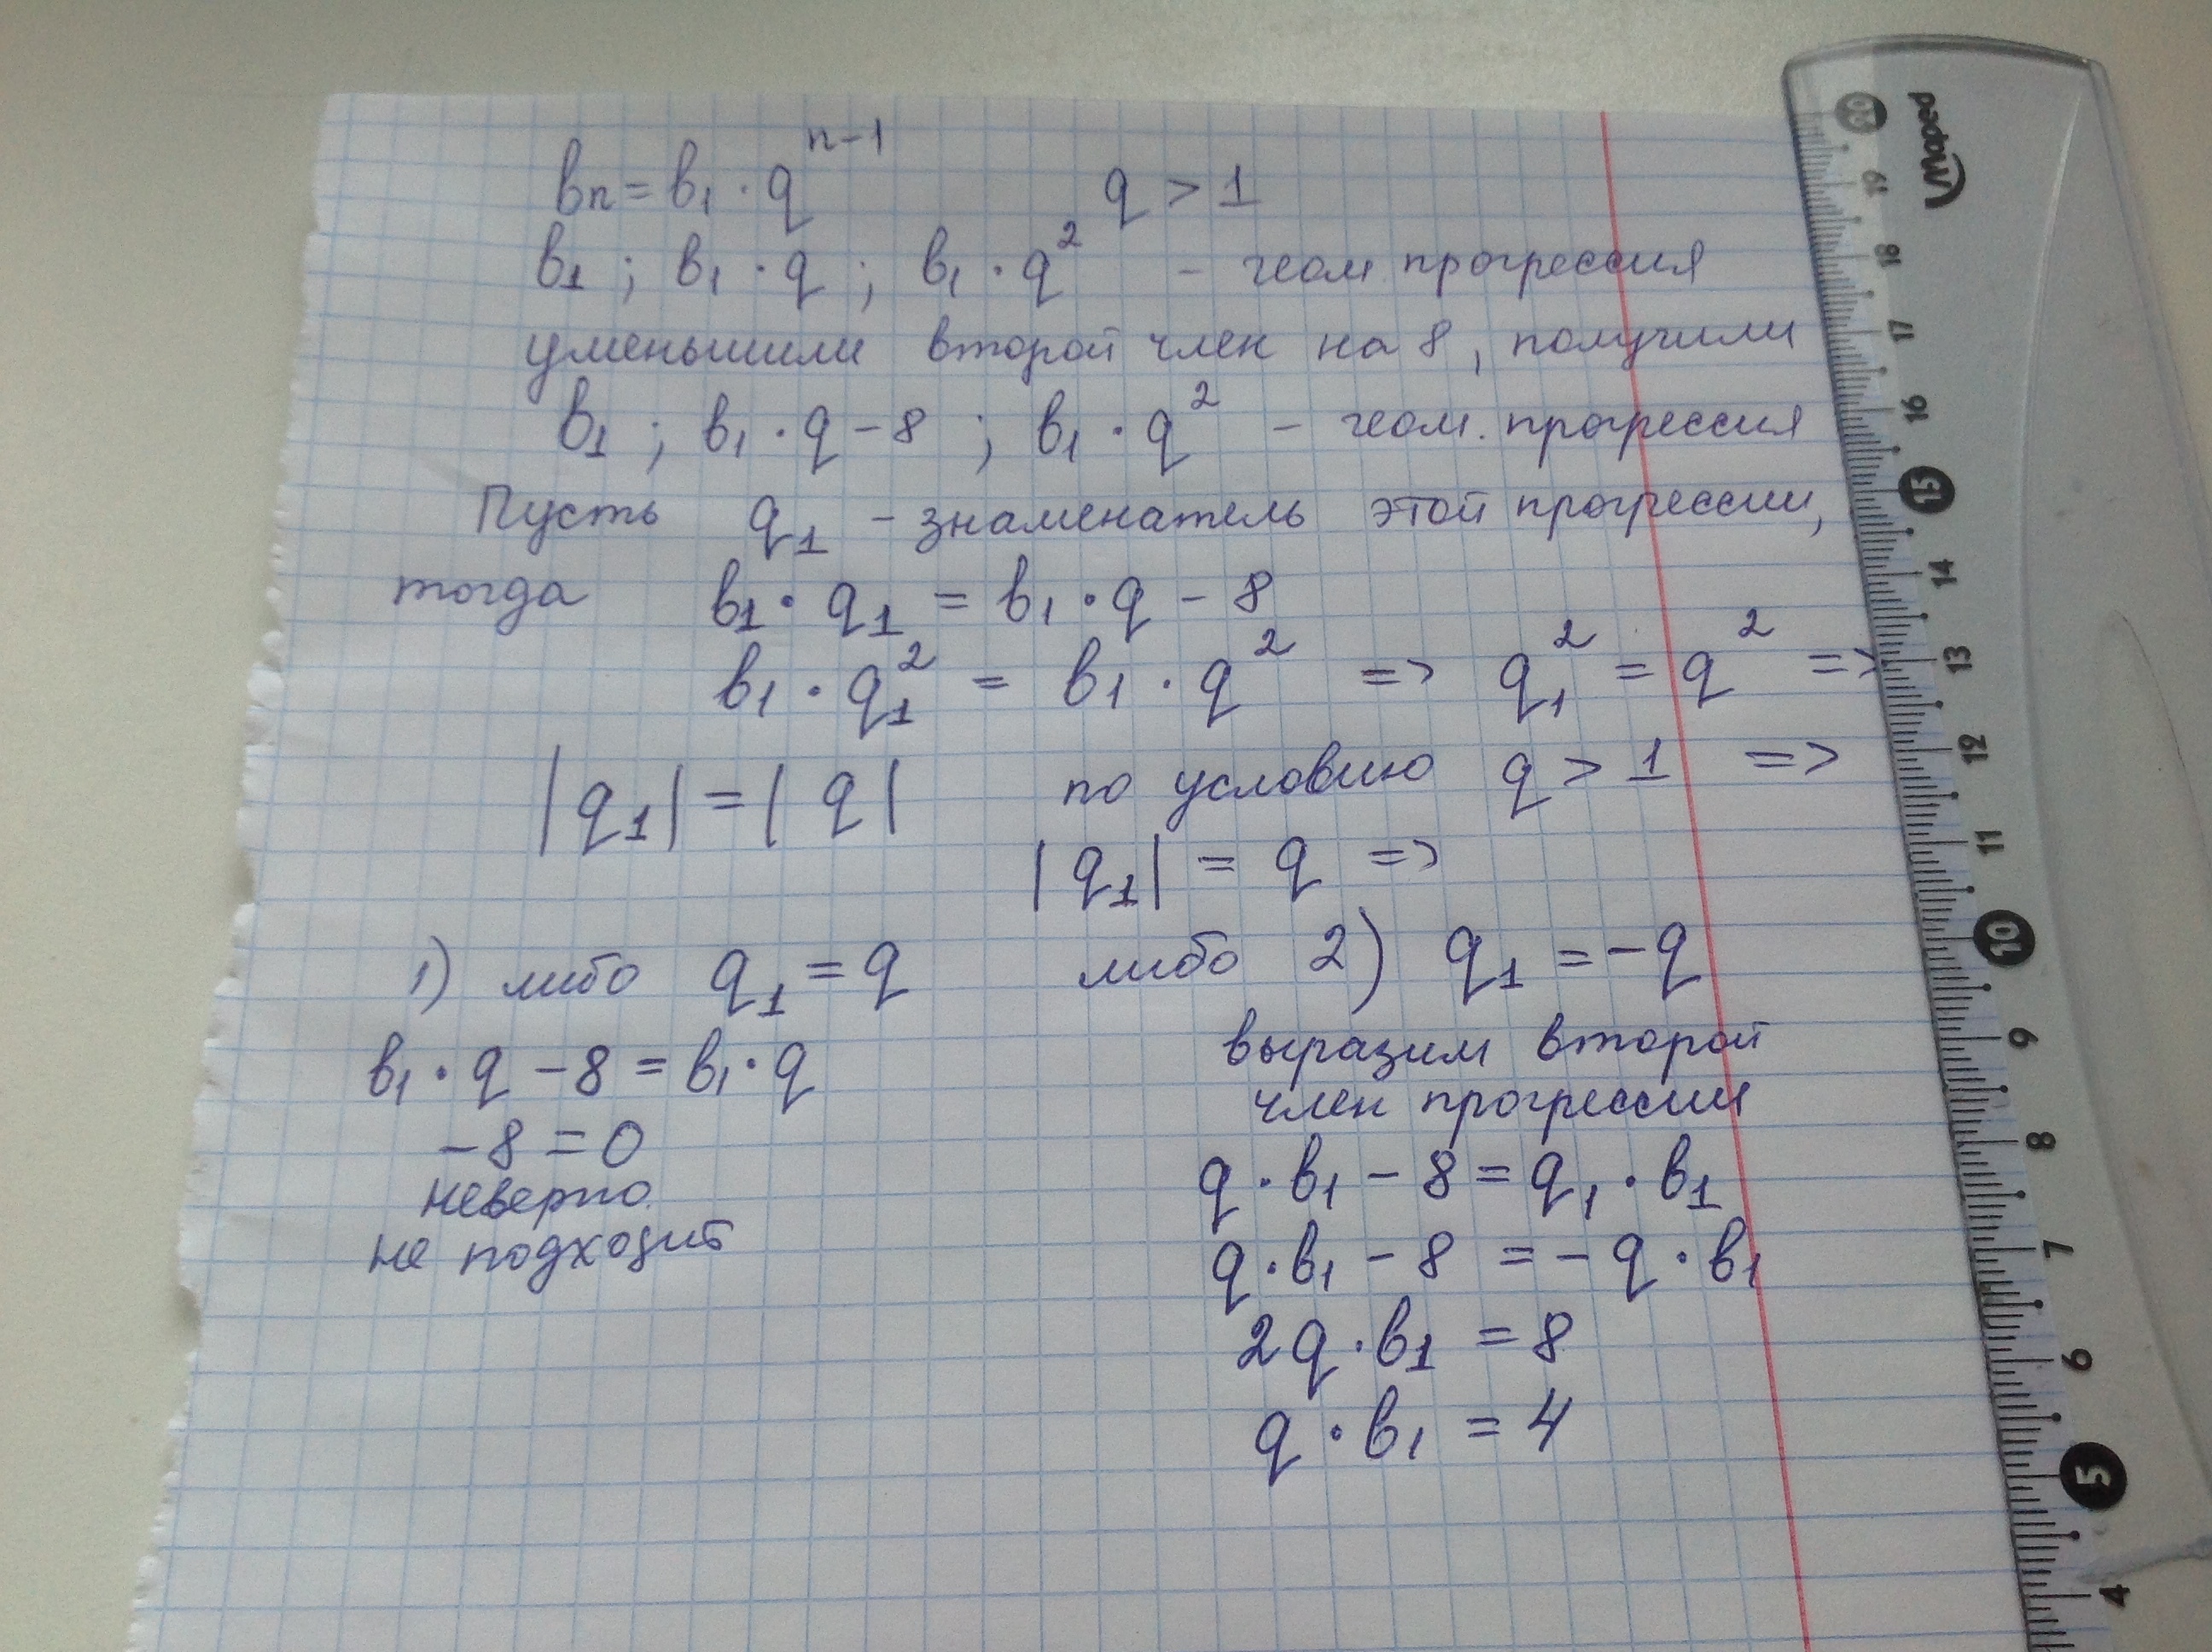 вn = в₁ · q^(n-1) q > 1
в₁ ; в₁ · q ; в₁ · q² - геом прогрессия
уменьшили второй член на 8, получили
в₁ ; в₁ · q - 8 ; в₁ · q² - геом. прогрессия
Пусть q₁ - знаменатель этой прогрессии,
тогда в₁ · q₁ = в₁ · q - 8
в₁ · q₁² = в₁ · q² => q₁² = q² =>
|q₁| = |q| по условию q > 1 =>
|q₁| = q =>
1) либо q₁ = q либо 2) q₁ = -q
в₁ · q - 8 = в₁ · q
-8 = 0
неверно.
не подходит
выразим второй
член прогрессии
q · в₁ - 8 = q₁ · в₁
q · в₁ - 8 = - q · в₁
2q · в₁ = 8
q · в₁ = 4
Мареd
20
19
18
17
16
15
14
13
12
11
10
9
8
7
6
5
4